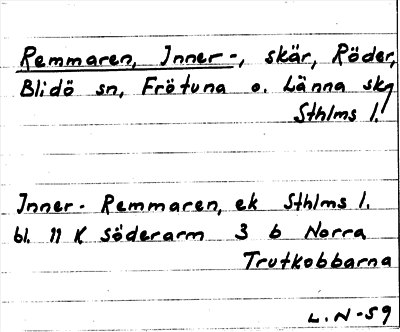 Remmaren, Inner-, skär, Röder,
Blidö sn, Frötuna o. Länna skg
Sthlms l.
Inner- Remmaren, ek Sthlms l.
bl. 11 K Söderarm 3 b Norra
Trutkobbarna
L. N-59